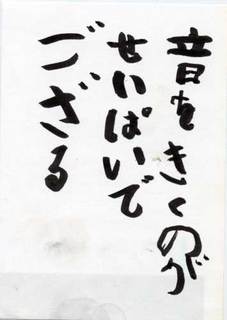 音をきくのが
せいぱいで
ござる